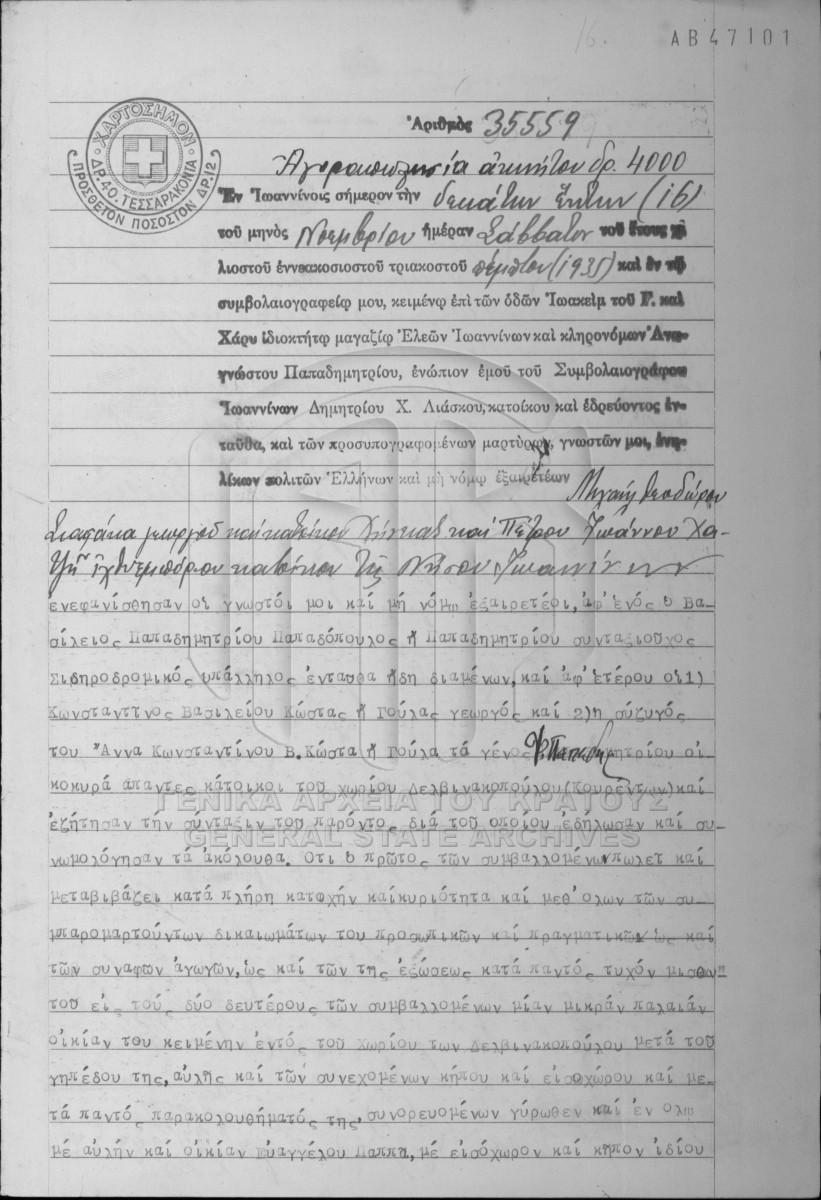 16.
AB47101
ΧΑΡΤΟΣΗΜΟΝ
ΔΡ.40.ΤΕΣΣΑΡΑΚΟΝΤΑ
ΠΡΟΣΘΕΤΟΝ ΠΟΣΟΣΤΟΝ ΔΡ.12
Ἀριθμὸς 35559
Ἀγοραπωλησία ἀκινήτου δρ. 4000
Ἐν Ἰωαννίνοις σήμερον τὴν δεκάτην ἕκτην (16)
τοῦ μηνὸς Νοεμβρίου ἡμέραν Σάββατον τοῦ ἔτους χι
λιοστοῦ ἐννεακοσιοστοῦ τριακοστοῦ πέμπτου (1935) καὶ ἐν τῷ
συμβολαιογραφείῳ μου, κειμένῳ ἐπὶ τῶν ὁδῶν Ἰωακεὶμ τοῦ Γ. καὶ
Χάρυ ἰδιοκτήτῳ μαγαζίῳ Ἐλεῶν Ἰωαννίνων καὶ κληρονόμων Ἀνα-
γνώστου Παπαδημητρίου, ἐνώπιον ἐμοῦ τοῦ Συμβολαιογράφου
Ἰωαννίνων Δημητρίου Χ. Λιάσκου, κατοίκου καὶ ἑδρεύοντος ἐν-
ταῦθα, καὶ τῶν προσυπογραφομένων μαρτύρων, γνωστῶν μοι, ἐνη-
λίκων πολιτῶν Ἑλλήνων καὶ μὴ νόμῳ ἐξαιρετέων Μιχαὴλ Θεοδώρου
γεωργοῦ καὶ κατοίκου καὶ Πέτρου Ἰωάννου Χα-
τζῆ ἰχθυεμπόρου κατοίκου τῆς Νήσου Ἰωαννίνων
ενεφανίσθησαν οἱ γνωστόι μοι καί μή νόμῳ ἐξαιρετέοι, ἀφ'ἑνός ὁ Βα-
σίλειος Παπαδημητρίου Παπαδόπουλος ἤ Παπαδημητρίου συνταξιοῦχος
Σιδηροδρομικός ὑπάλληλος ἐνταυθα ἤδη διαμένων, καί ἀφ'ἑτέρου οἱ 1)
Κωνσταντῖνος Βασιλείου Κώστας ἤ Γούλας γεωργός καί 2)η σύζυγός
του Ἄννα Κωνσταντίνου Β. Κώστα ἤ Γούλα τό γένος Β. Παπαδημητρίου οἰ
κοκυρά ἅπαντες κάτοικοι τοῦ χωρίου Δελβινακοπούλου(Κουρέντων) καί
ἐζήτησαν τήν σύνταξιν τοῦ παρόντος διά τοῦ οποίου ἐδήλωσαν καί συ-
νωμολόγησαν τά ἀκόλουθα. Οτι ὁ πρῶτος τῶν συμβαλλομένων πωλεῖ καί
μεταβιβάζει κατά πλήρη κατοχήν καίκυριότητα καί μεθ'ολων τῶν συ-
μπαρομαρτούντων δικαιωμάτων του προσωπικῶν καί πραγματικῶν ὡς καί
τῶν συναφῶν ἀγωγῶν, ὡς καί τῶν της ἐξώσεως κατά παντός τυχόν μισθω"
τοῦ εἰς τούς δύο δευτέρους τῶν συμβαλλομένων μίαν μικράν παλαιάν
οἰκίαν του κειμένην ἐντός τοῦ Χωρίου των Δελβινακοπούλου μετά τοῦ
γηπέδου της, αὐλῆς καί τῶν συνεχομένων κήπου καί εἰσοχώρου καί με-
τά παντός παρακολουθήματός της, συνορευομένων γύρωθεν καί ἐν ολῳ
μέ αὐλήν καί οἰκίαν Εὐαγγέλου Παππᾶ, μέ εἰσόχωρον καί κῆπον ἰδίου
ΓΕΝΙΚΑ ΑΡΧΕΙΑ ΤΟΥ ΚΡΑΤΟΥΣ
GENERAL STATE ARCHIVES